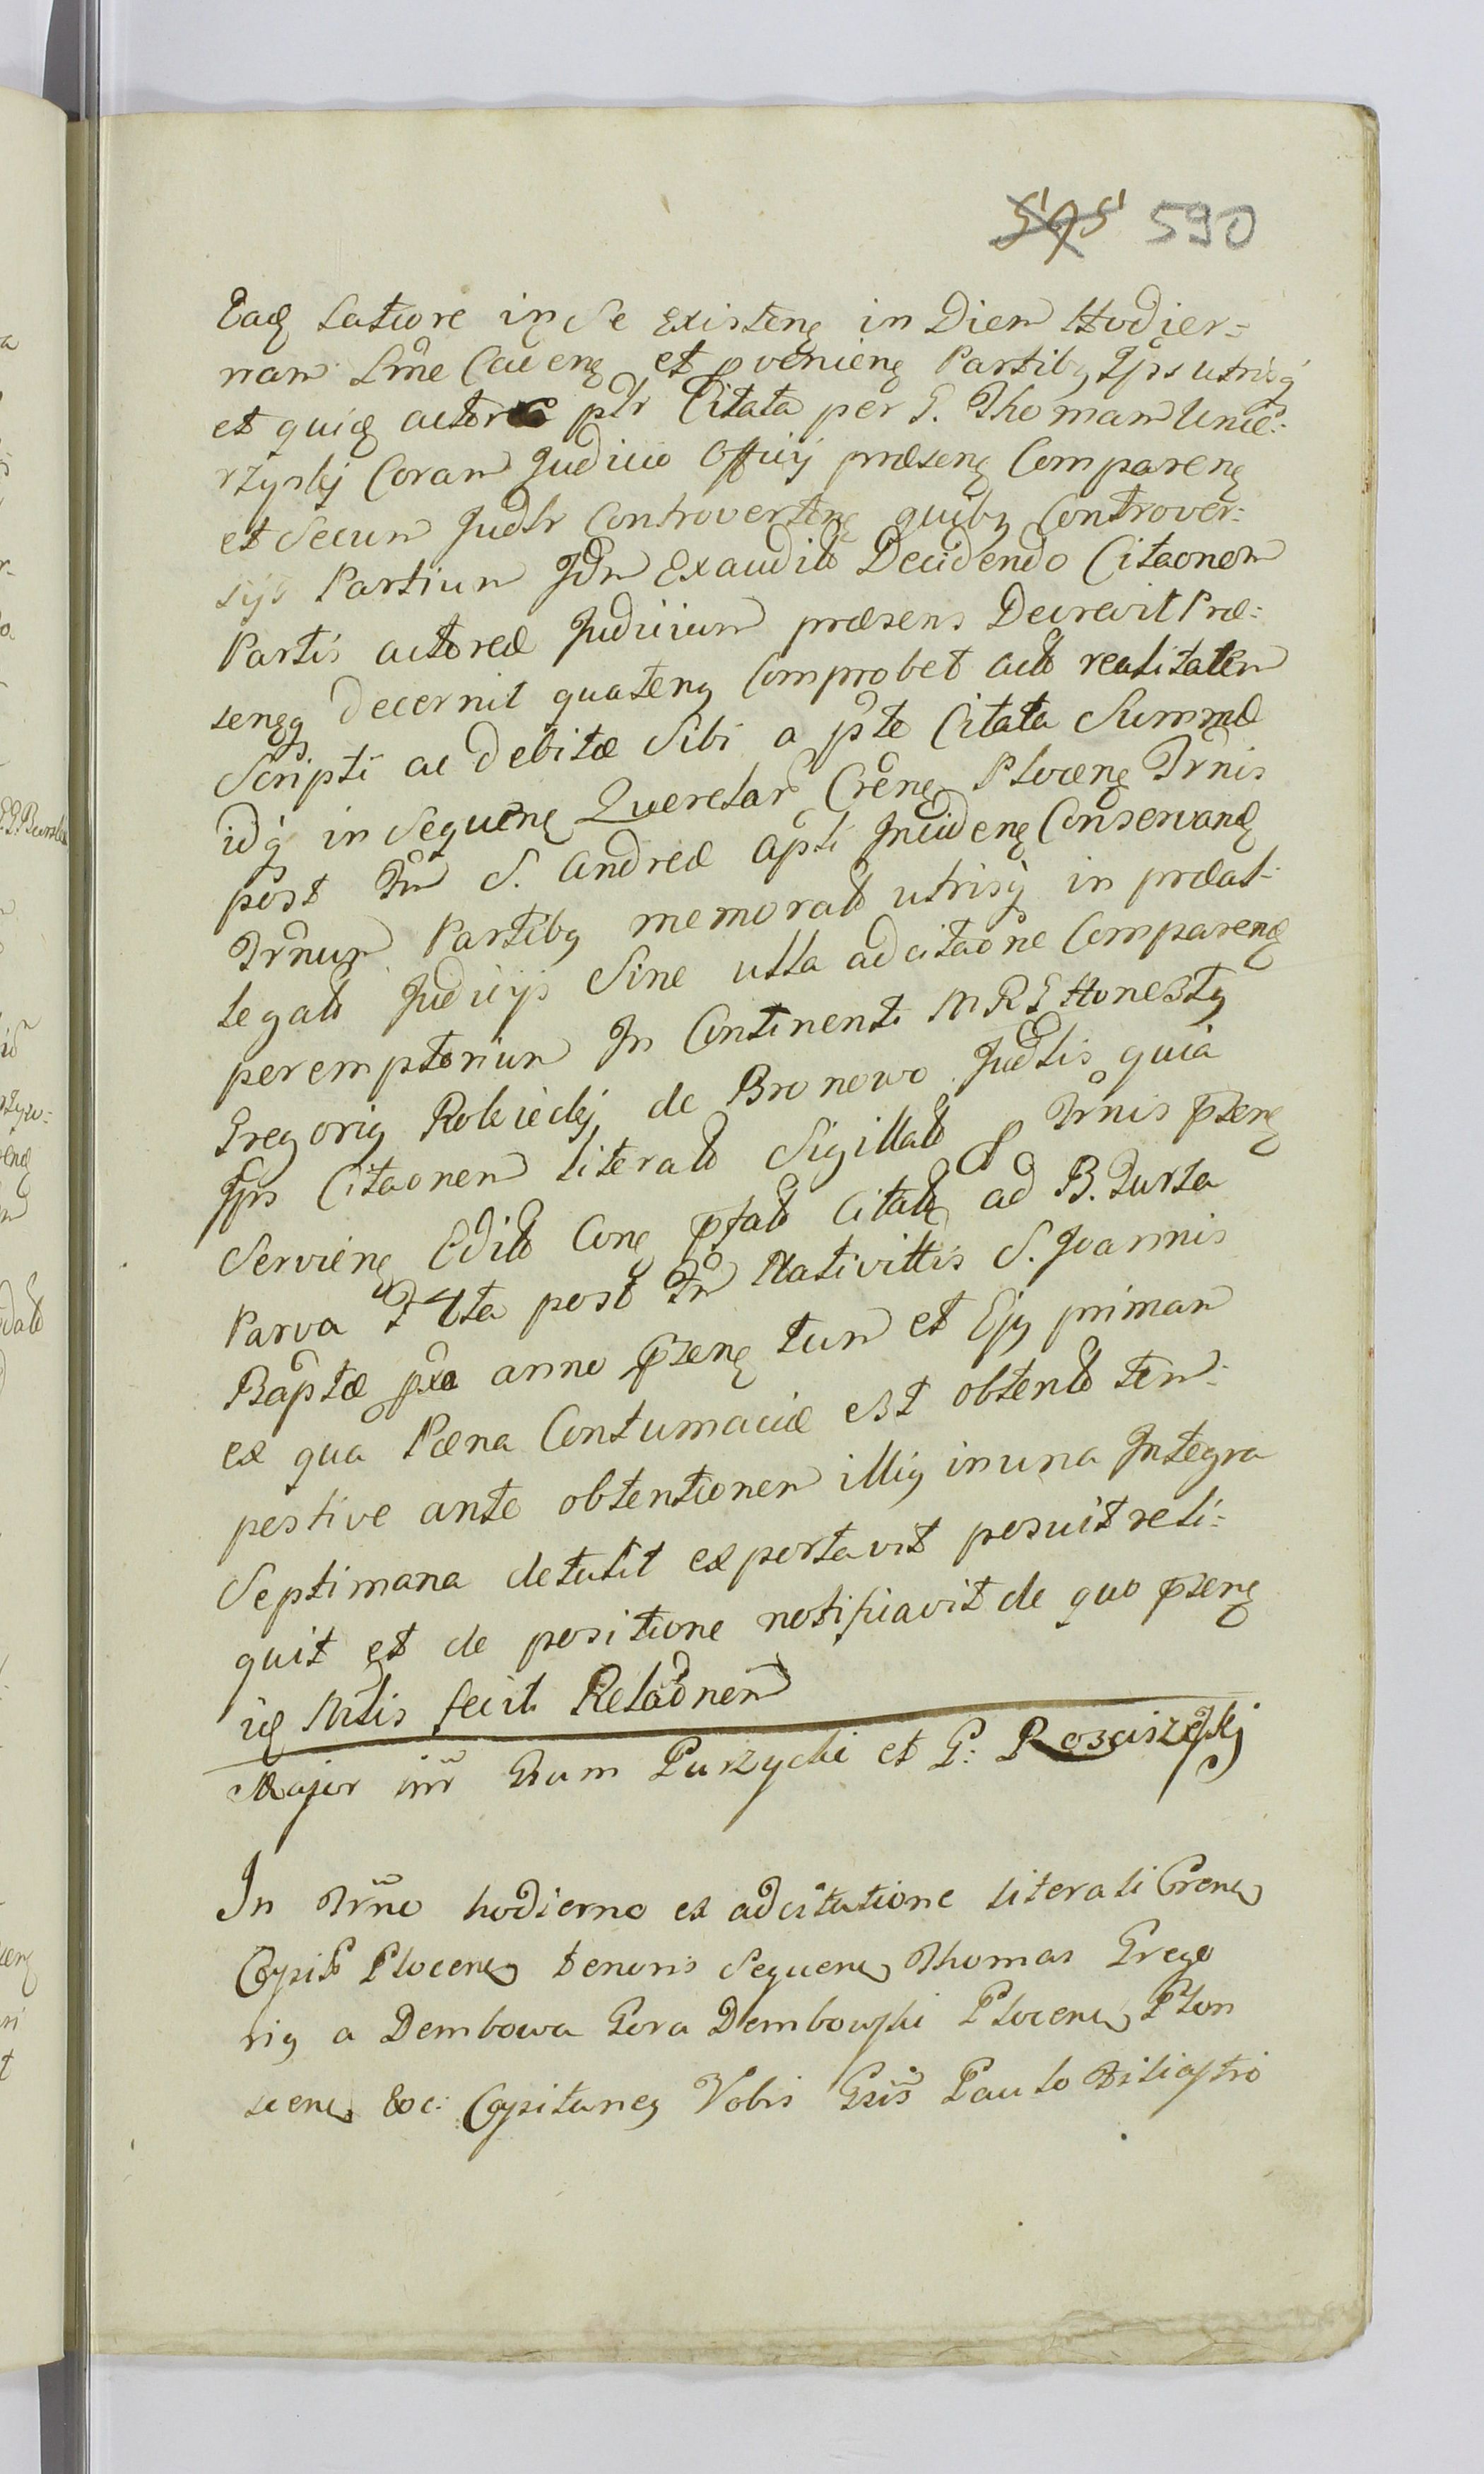 595 590
Eadem Latiore in se Existen in Diem Hodier=
nam Lime Caden et pvenien Partibq Ipis utrisq
et quidem actorea ptr Citata per G. Thomam Unie=
rzyski Coram Judicio Officij praesen Comparen
et Secum Judlr Controverten quibq Controver=
sijs Partium Idm Exaudit Decidendo Citaonem
Partis actoreae Judicium praesens Decrevit Prae=
senqq Decernit quatenq Comprobet act realitatem
Scripti ac debitae Sibi a pte Citata Summae
idq in Sequen Querelar Cren Plocen Trnis
post Fm S. Andreae Apli Inciden Conservand
Trnum Partibq memorat utrisq in praeal=
legat Judicijs Sine ulla adcitaone Comparend
peremptorium In Continenti MRG Honestq
Gregoriq Rokicki de Bronowo Judlis quia
Ipis Citaonem literat Sigillat p Trnis pzen
Servien Edit Con pfat Citat ad B. Turza
Parva F 4ta post Fm Nativittis S. Joannis
Baptae pxa anno pzen tum et Ejq primam
ex qua Paena Contumaciae est obtent tem=
pestive ante obtentionem illiq in una Integra
Septimana detulit exportavit posuit reli=
quit et de positione notificavit de quo pzen
ic Mtlis fecit Relaonem
Major inr Grum Purzycki et G: Rosciszewski
In Trno hodierno ex adcitatione literali Cren
Capit Plocen tenoris Sequen Thomas Grego
riq a Dembowa Gora Dembowski Plocen Plon
scen &c: Capitaneq Vobis Gsis Paulo Filiastro